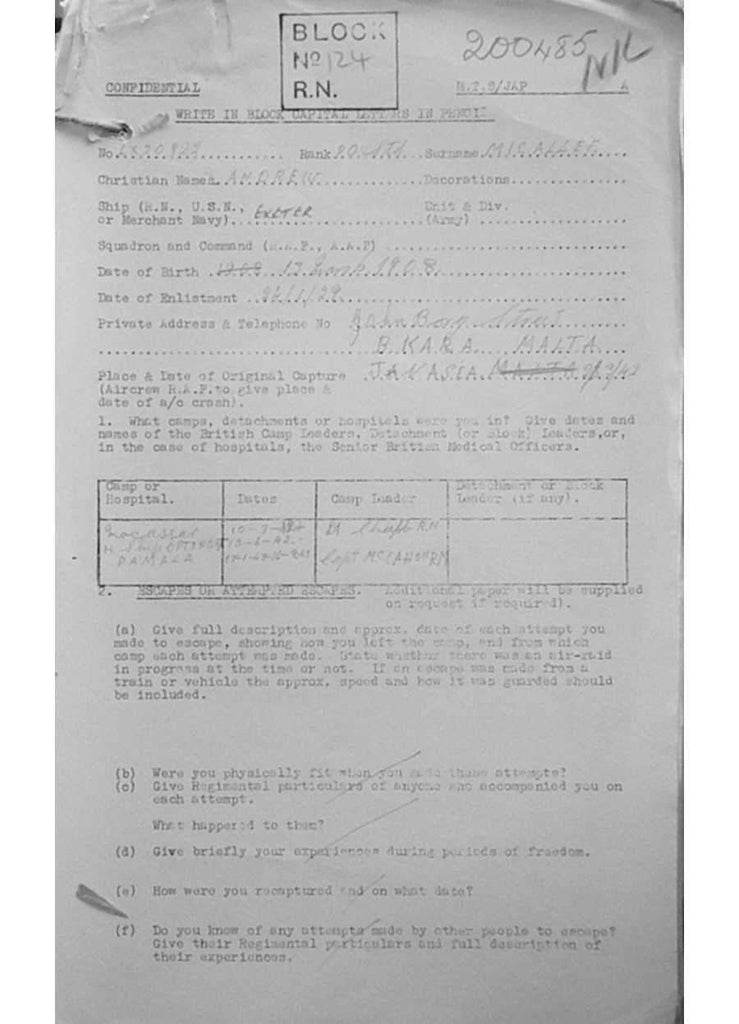 BLOCK
Nº 124
R.N.
200485
NIL
CONFIDENTIAL
M.I.9/JAP A
WRITE IN BLOCK CAPITAL LETTERS IN PENCIL
No. Rank Surname MICALLEF
Christian Names. ANDREW Decorations
Ship (R.N., U.S.N., Unit & Div.
or Merchant Navy). EXETER (Army)
Squadron and Command (R.A.F., A.A.F)
Date of Birth 1908 13 1908
Date of Enlistment
Private Address & Telephone No
B.KARA MALTA
Place & Date of Original Capture JAVA SEA
(Aircrew R.A.F. to give place &
date of a/c crash).
1. What camps, detachments or hospitals were you in? Give dates and
names of the British Camp Leaders, Detachment (or Block) Leaders,or,
in the case of hospitals, the Senior British Medical Officers.
Camp or Detachment or Block
Hospital. Dates Camp Leader Leader (if any).
Macassar
2. ESCAPES OR ATTEMPTED ESCAPES. Additional paper will be supplied
on request if required).
(a) Give full description and approx. date of each attempt you
made to escape, showing how you left the camp, and from which
camp each attempt was made. State whether there was an air-raid
in progress at the time or not. If an escape was made from a
train or vehicle the approx. speed and how it was guarded should
be included.
(b) Were you physically fit when you made these attempts?
(c) Give Regimental particulars of anyone who accompanied you on
each attempt.
What happened to them?
(d) Give briefly your experiences during periods of freedom.
(e) How were you recaptured and on what date?
(f) Do you know of any attempts made by other people to escape?
Give their Regimental particulars and full description of
their experiences.